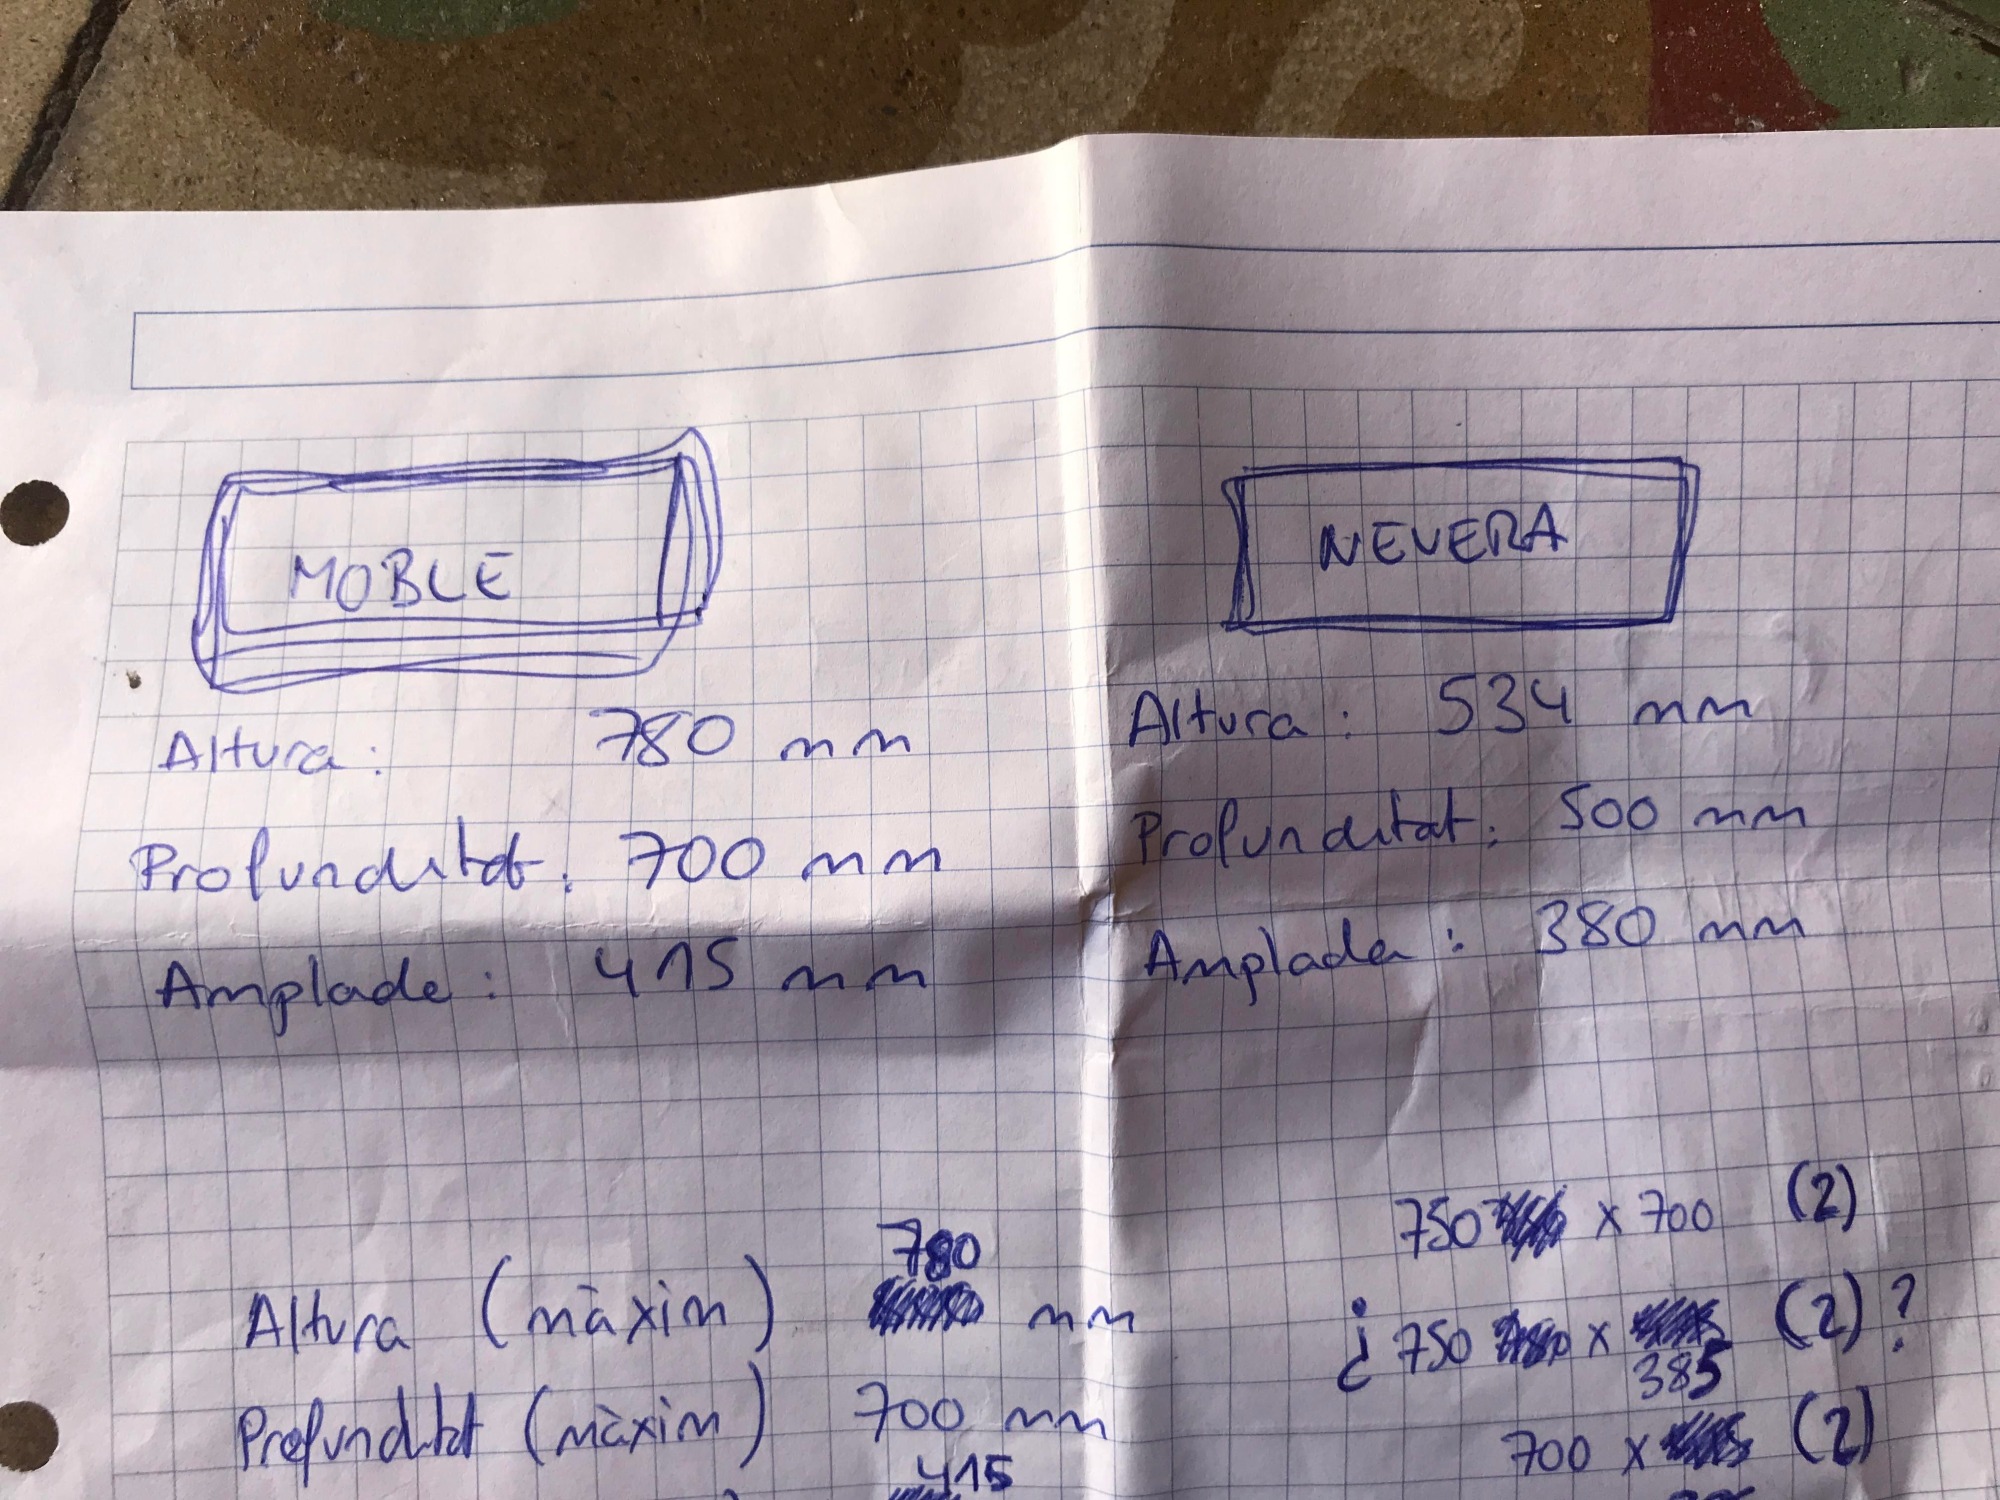 MOBLE
Altura: 780 mm
Profunditat: 700 mm
Amplade: 415 mm
NEVERA
Altura: 534 mm
Profunditat: 500 mm
Amplada: 380 mm
780
Altura (màxim) mm
Profunditat (màxim) 700 mm
415
750 x 700 (2)
¿ 750 x (2) ?
385
700 x (2)